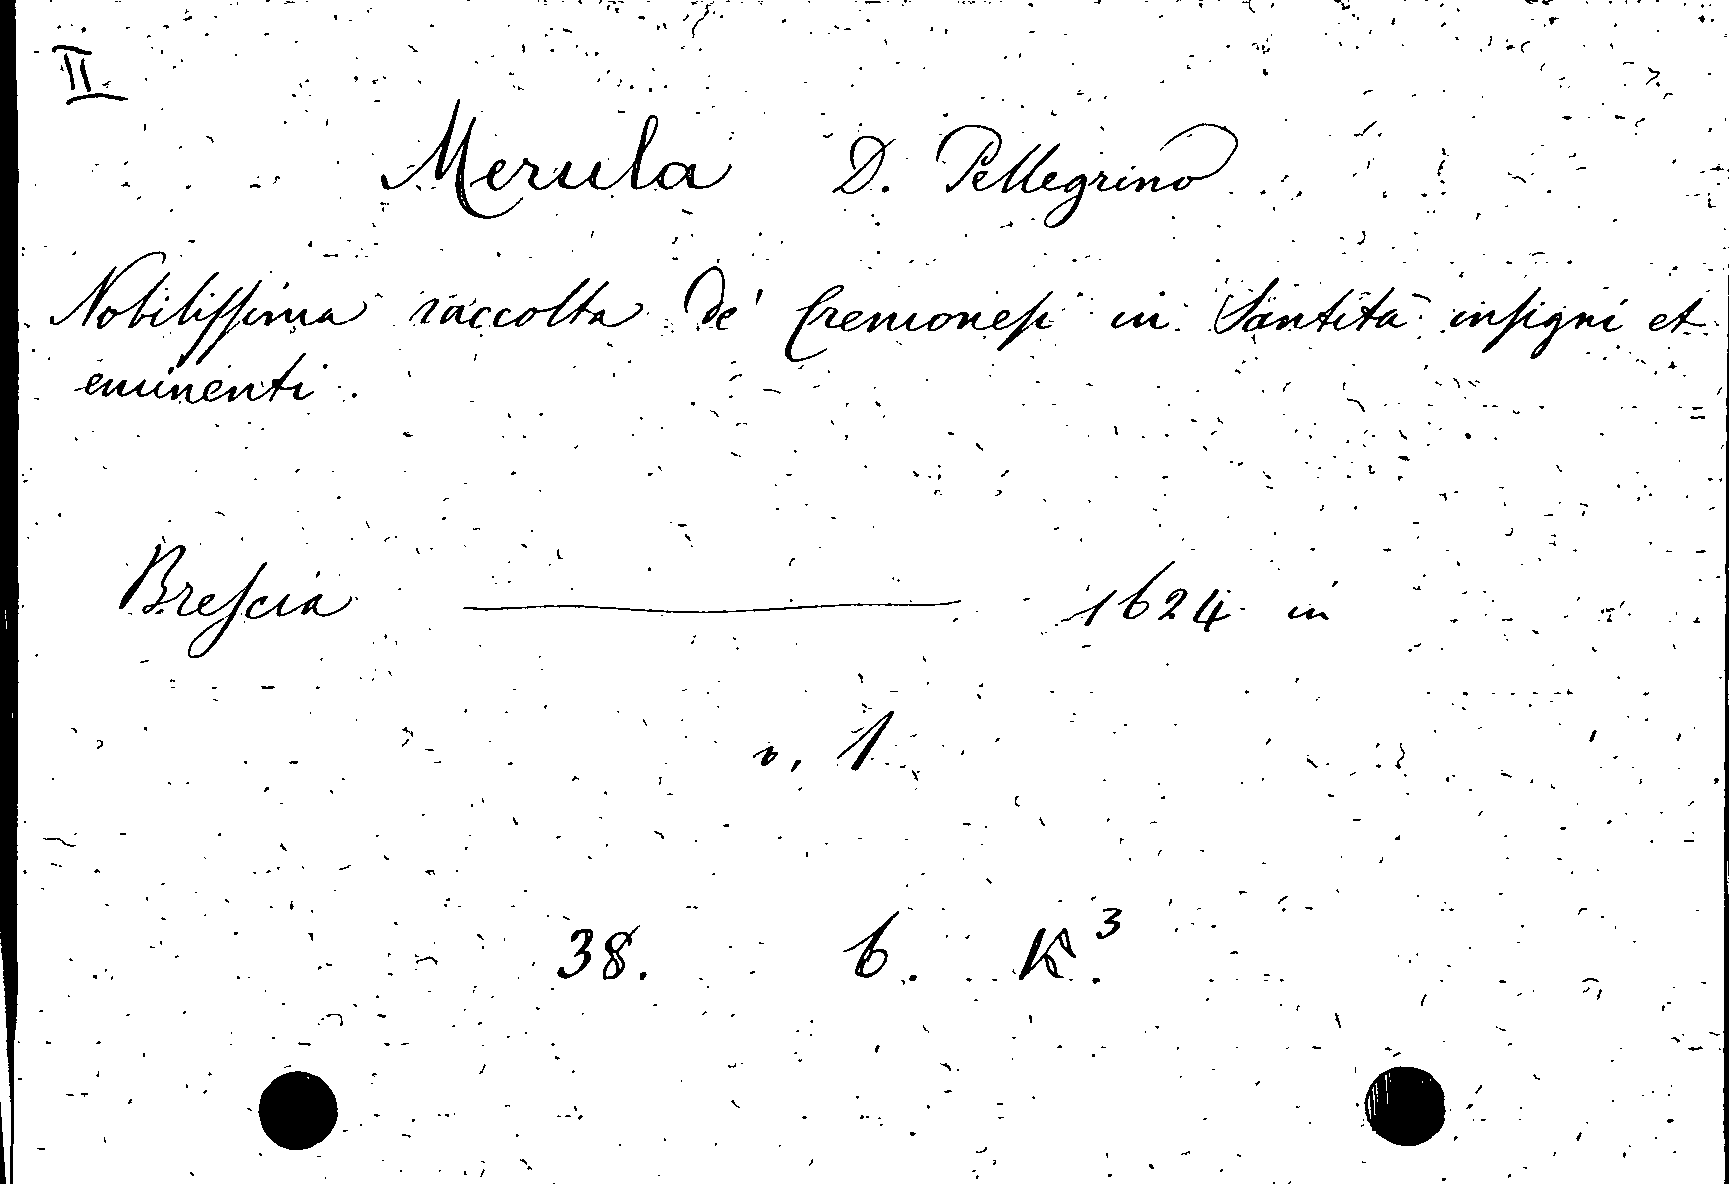 II
Merula D. Pellegrino
Nobiliſſima raccolta de' Cremoneſi in Santità inſigni et
eminenti.
Breſcia ——— 1624 in
v. 1
38. 6. K³.